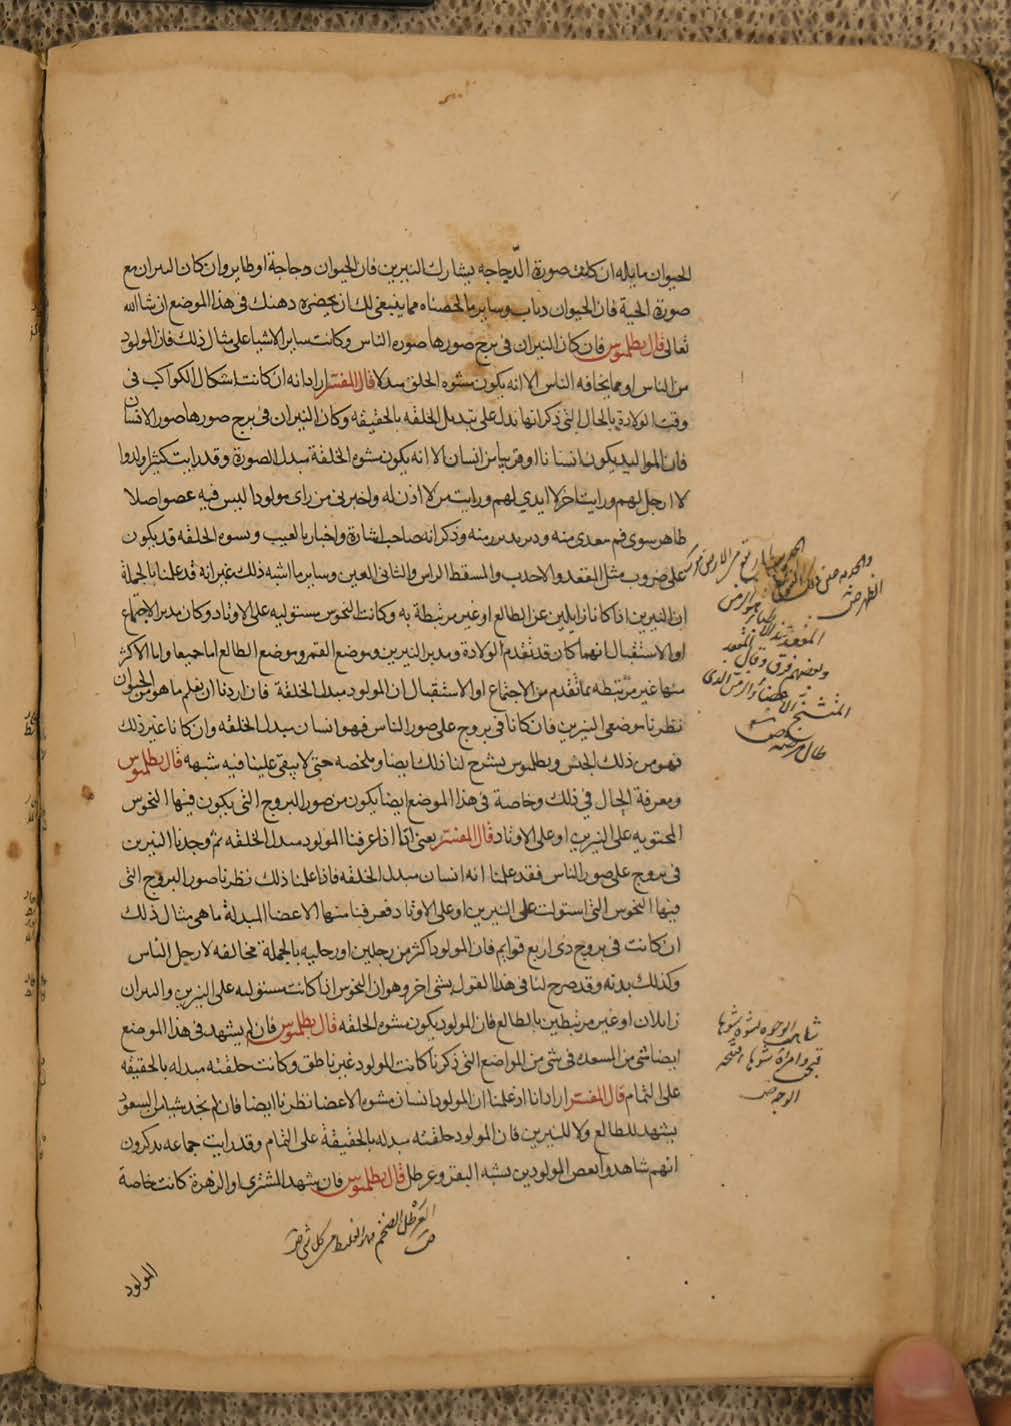 الحيوان مايله ان كانت صورة الدجاجه يشارك النيرين فان الحيوان دجاجة او طاير وان كان النيران مع
صورة الحية فان الحيوان دباب وساير ما لخصناه مما ينبغى لك ان يحضره دهنك فى هذا الموضع ان شا الله
تعالى قال بطلميوس فان كان النيران فى برج صورها صوره الناس وكانت ساير الاشيا على مثال ذلك فان المولود
من الناس او مما يخافه الناس الا انه يكون مشوه الخلق مبدلا قال المفسر اراد انه ان كانت اشكال الكواكب فى
وقت الولادة بالحال التى ذكر انها تدل على تبديل الخلقه بالحقيقه وكان النيران فى برج صورها صور الانسان
فان المواليد يكون انسانا او قريبا من انسان الا انه يكون مشوه الخلقة مبدل الصورة وقد رايت كثيرا ولدوا
لا ارجل لهم ورايت اخر لا ايدي لهم ورايت من لا اذن له واخبرنى من راى مولودا ليس فيه عضو اصلا
ظاهر سوى فم منه وذكر انه صاحب اشارة واخبار بالعيب وتشوه الخلقه قد يكون
على ضروب مثل المقعد والاحدب والمسقط الراس والثانى العين وساير ما اشبه ذلك غير انه قد علمنا بالجملة
ان النيرين اذا كانا زايلين عن الطالع او غير مرتبطة به وكانت النحوس مستوليه على الاوتاد وكان مدبر الاجتماع
او الاستقبال ايهما كان قد تقدم الولادة ومدبر النيرين وموضع القمر وموضع الطالع اما جميعا واما الاكثر
منها غير مرتبطه بما تقدم من الاجتماع او الاستقبال ان المولود مبدل الخلقة فان اردنا ان نعلم ما هو من الحيوان
نظرنا موضعى النيرين فان كانا فى بروج على صور الناس فهو انسان مبدل الخلقه وان كانا غير ذلك
فهو من ذلك الجنس وبطلميوس يشرح لنا ذلك ايضا ويلخصه حتى لا يبقى علينا فيه شبهه قال بطلميوس
ومعرفة الحال فى ذلك وخاصة فى هذا الموضع ايضا يكون من صور البروج التى يكون فيها النحوس
المحتويه على النيرين او على الاوتاد قال المفسر يعنى انا اذا عرفنا المولود مبدل الخلقه ثم وجدنا النيرين
فى بروج على صور الناس فقد علمنا انه انسان مبدل الخلقه فاذا علمنا ذلك نظرنا صور البروج التى
فيها النحوس التى استولت على النيرين او على الاوتاد فعرفنا منها الاعضا المبدلة ما هى مثال ذلك
ان كانت فى بروج ذى اربع قوايم فان المولود اكثر من رجلين او رجليه بالجملة مخالفه لارجل الناس
وكذلك بدنه وقد صرح لنا فى هذا القول بشى اخر وهو ان النحوس اذا كانت مستوليه على النيرين والنيران
زايلان او غير مرتبطين بالطالع فان المولود يكون مشوه الخلقه قال بطلميوس فان لم يشهد فى هذا الموضع
ايضا شى من السعد فى شى من المواضع التى ذكرنا كانت المولود غير ناطق وكانت خلقته مبدله بالحقيقه
على التمام قال المفسر اراد انا اذ علمنا ان المولود انسان مشوه الاعضا نظرنا ايضا فان لم نجد شيا من السعود
يشهد للطالع ولا للنيرين فان المولود خلقته مبدله بالحقيقة على التمام وقد رايت جماعه يذكرون
انهم شاهدوا بعض المولودين يشبه البقر وعرطل قال بطلميوس فان يشهد المشترى او الزهرة كانت خاصة
العرطل الضخم من كل شى
المولود
شاهت الوجوه تشوه شوها
قبحت وامرة شوها قبيحة
الوجه